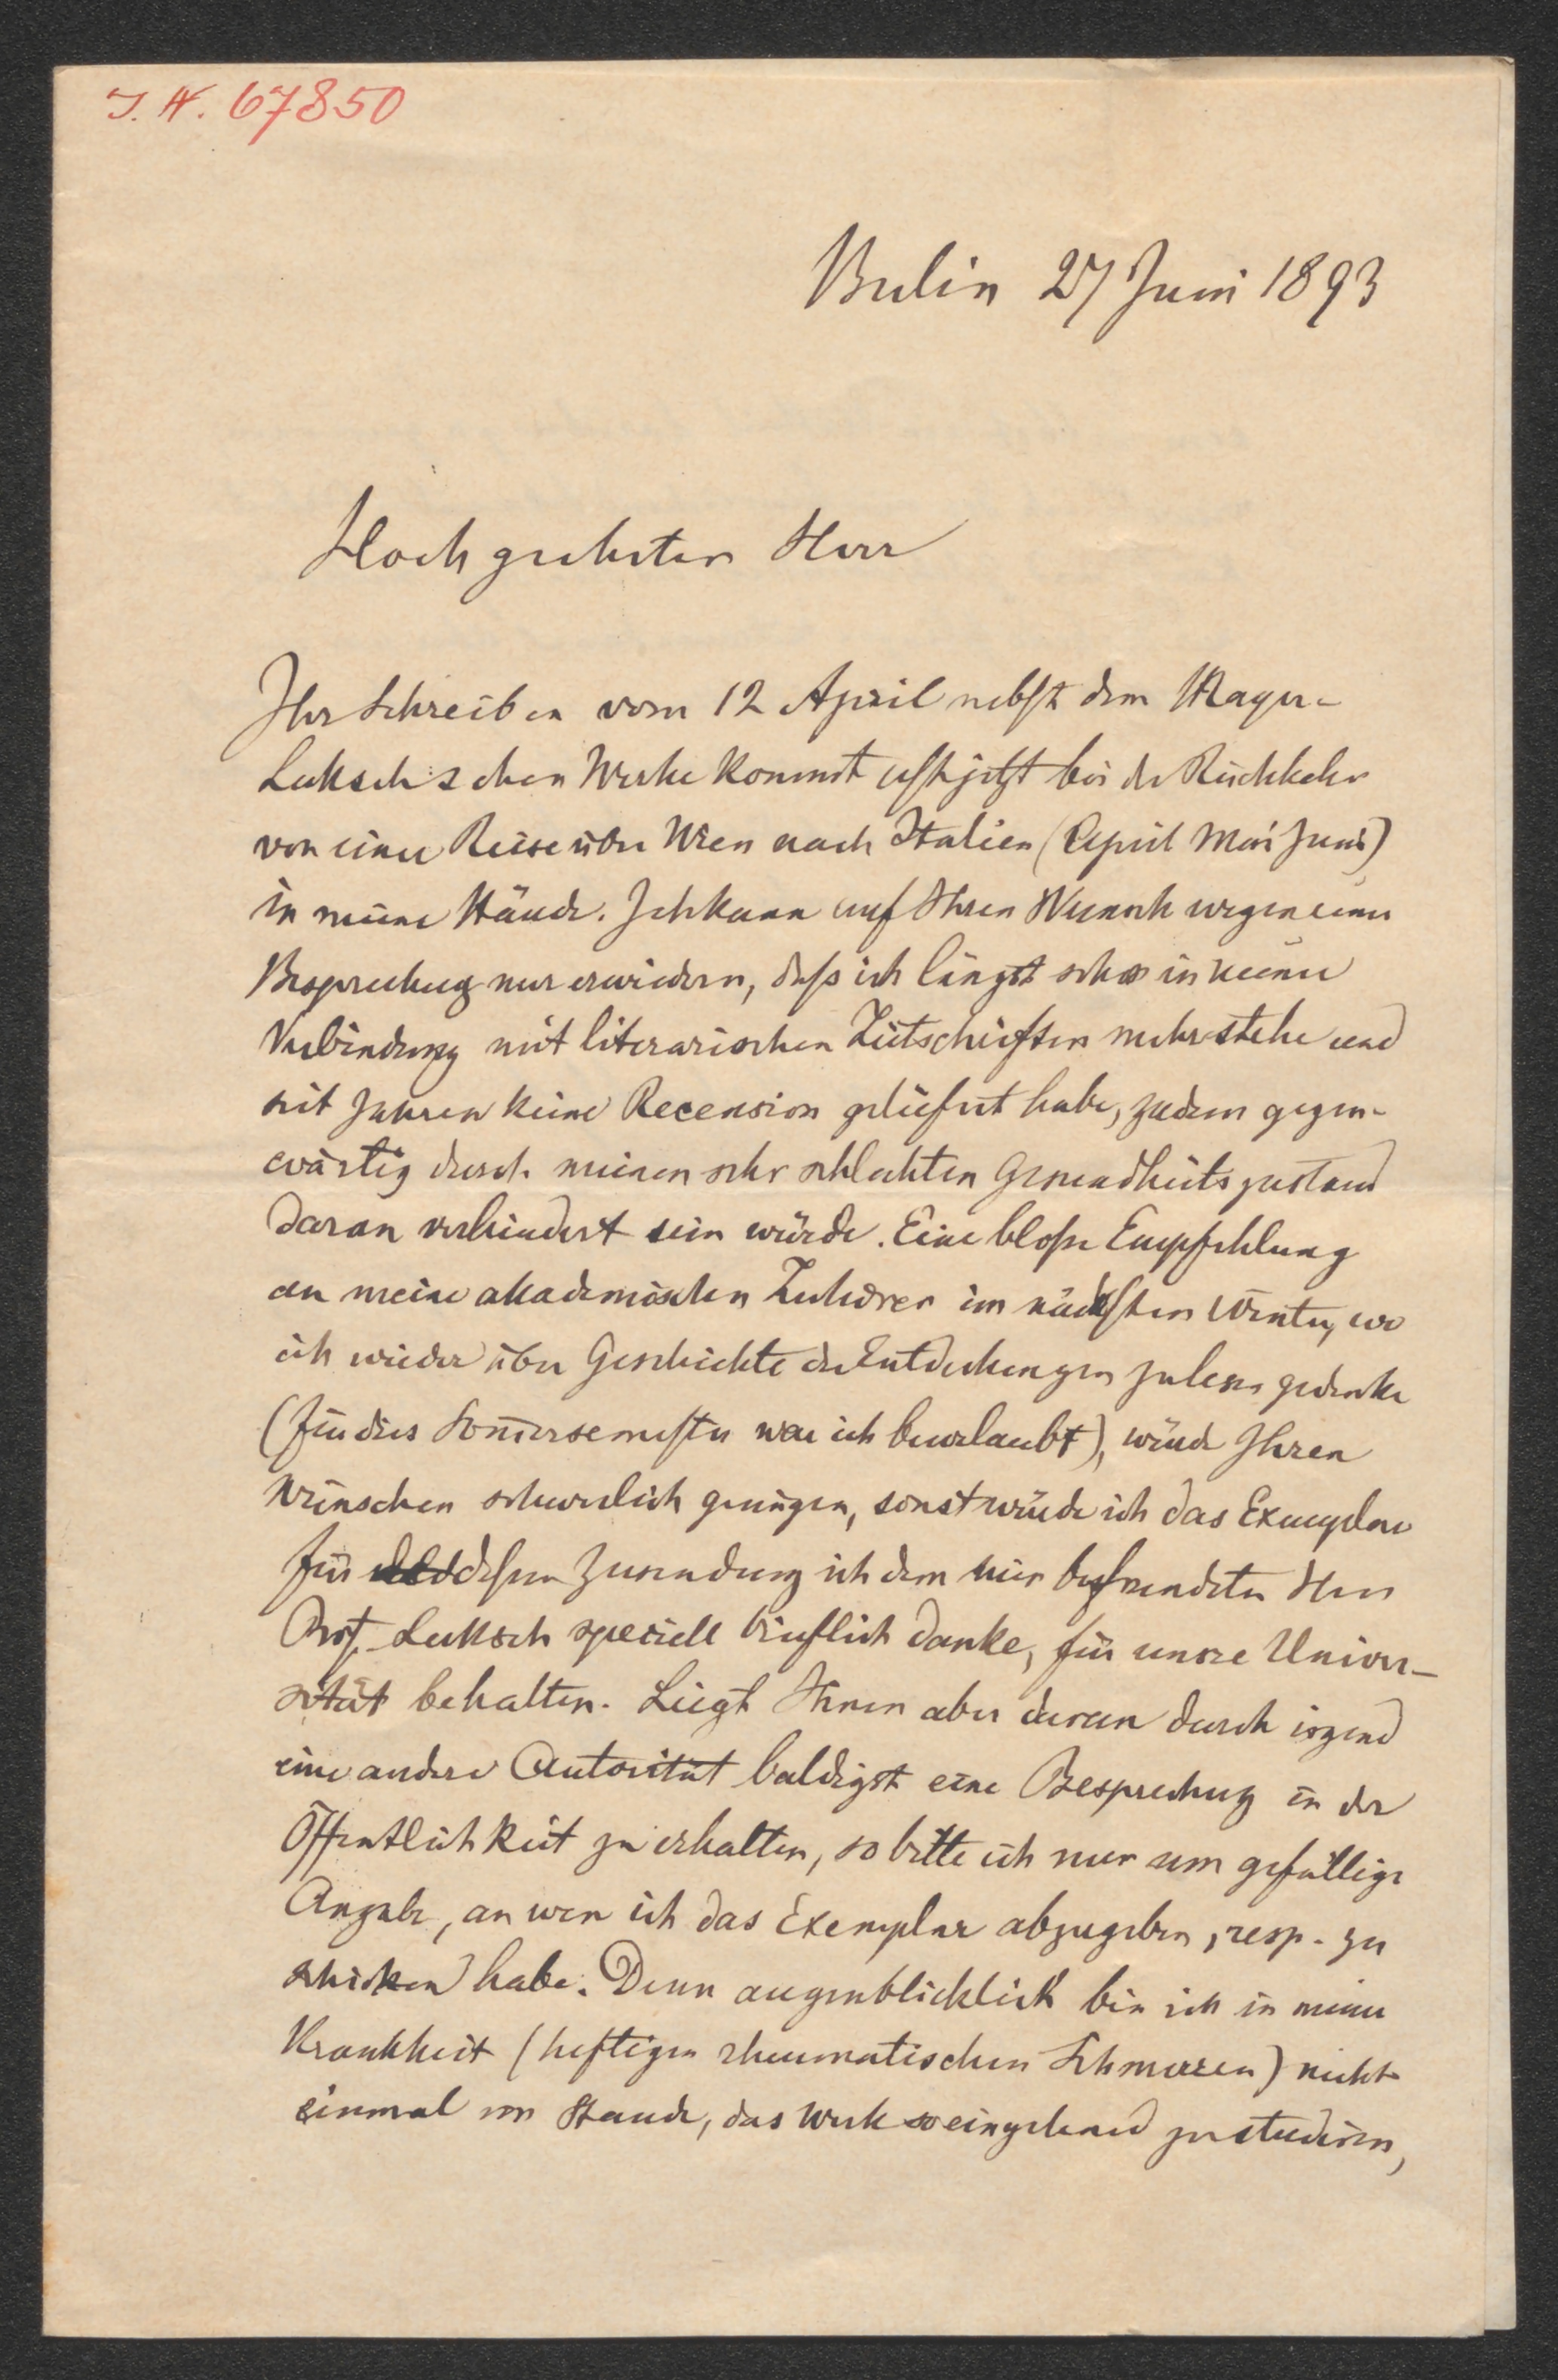 I. N. 67850
Berlin 27 Juni 1893
Hochgeehrter Herr
Ihr Schreiben vom 12 April nebst dem Mayer-
Luksch'schen Werke kommt erst jetzt bei der Rückkehr
von einer Reise über Wien nach Italien (April Mai Juni)
in meine Hände. Ich kann auf Ihren Wunsch wegen einer
Besprechung nur erwiedern, daß ich längst schon in keiner
Verbindung mit literarischen Zeitschriften mehr stehe und
seit Jahren keine Recension geliefert habe, zudem gegen-
wärtig durch meinen sehr schlechten Gesundheitszustand
daran verhindert sein würde. Eine bloße Empfehlung
an meine akademischen Zuhörer im nächsten Winter, wo
ich wieder über Geschichte der Entdeckungen zu lesen gedenke
(für dies Som̄ersemester war ich beurlaubt), würde Ihren
Wünschen schwerlich genügen, sonst würde ich das Exemplar
für dessen Zusendung ich dem mir befreundeten Herrn
Prof. Luksch speciell brieflich danke, für unsre Univer-
sität behalten. Liegt Ihnen aber daran durch irgend
eine andere Autorität baldigst eine Besprechung in der
Öffentlichkeit zu erhalten, so bitte ich nur um gefällige
Angabe, an wen ich das Exemplar abzugeben, resp. zu
schicken habe. Denn augenblicklich bin ich in meiner
Krankheit (heftigen rheumatischen Schmerzen) nicht
einmal im Stande, das Werk so eingehend zu studiren,